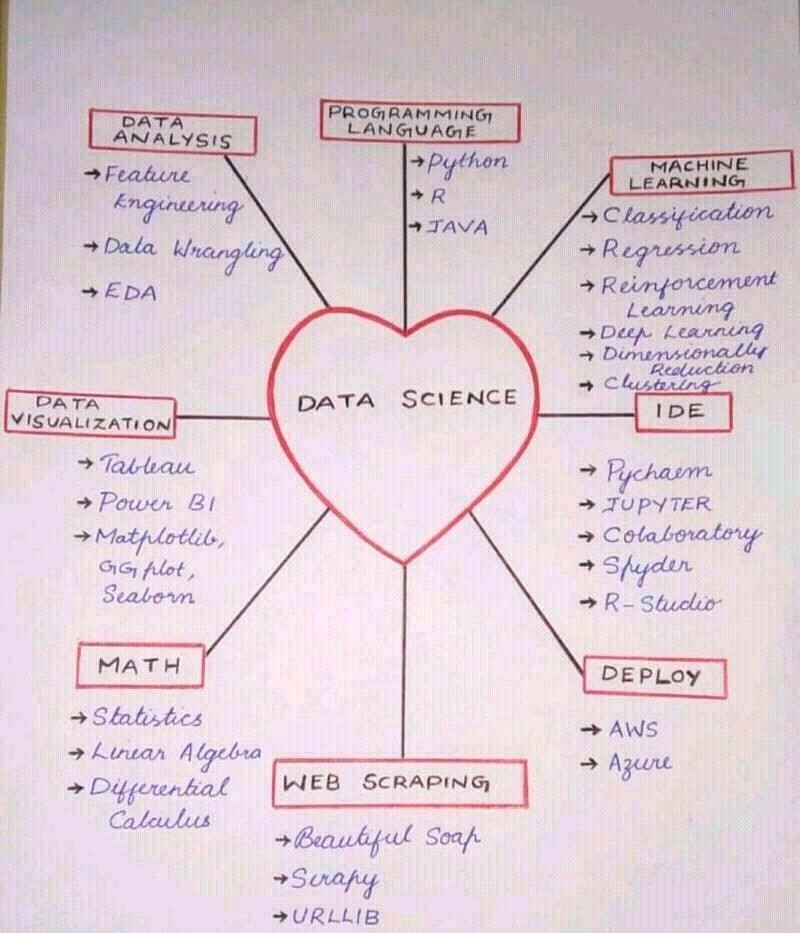 DATA
ANALYSIS
→ Feature
Engineering
→ Data Wrangling
→ EDA
PROGRAMMING
LANGUAGE
→ Python
→ R
→ JAVA
MACHINE
LEARNING
→ Classification
→ Regression
→ Reinforcement
Learning
→ Deep Learning
→ Dimensionally
Reduction
→ Clustering
DATA SCIENCE
DATA
VISUALIZATION
→ Tableau
→ Power BI
→ Matplotlib,
GG plot,
Seaborn
IDE
→ Pychaem
→ JUPYTER
→ Colaboratory
→ Spyder
→ R-Studio
MATH
→ Statistics
→ Linear Algebra
→ Differential
Calculus
WEB SCRAPING
→ Beautiful Soap
→ Scrapy
→ URLLIB
DEPLOY
→ AWS
→ Azure